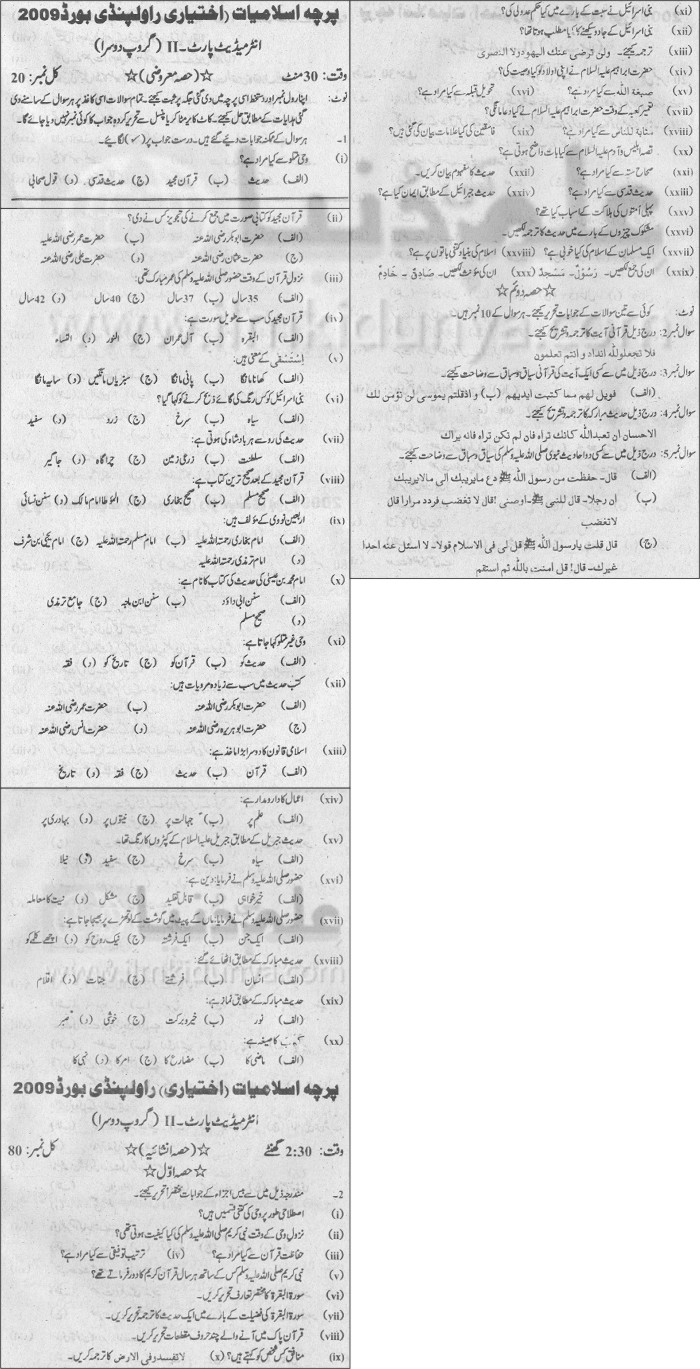 پرچہ اسلامیات (اختیاری) راولپنڈی بورڈ 2009
انٹرمیڈیٹ پارٹ۔ II (گروپ دوسرا)
وقت: 30 منٹ ☆(حصہ معروضی)☆ کل نمبر: 20
نوٹ: اپنا رول نمبر اور دستخط اسی پرچہ میں دی گئی جگہ پر ثبت کیجئے۔ تمام سوالات اسی کاغذ پر ہر سوال کے سامنے دی
گئی ہدایات کے مطابق حل کیجئے۔ کاٹ کر یا مٹا کر یا پنسل سے تحریر کردہ جواب کا کوئی نمبر نہیں دیا جائے گا۔
1۔ ہر سوال کے ممکنہ جوابات دیئے گئے ہیں۔ درست جواب پر (✓) لگایئے۔
(i) وحی متلو سے کیا مراد ہے؟
(الف) حدیث (ب) قرآن مجید (ج) حدیث قدسی (د) قول صحابی
(ii) قرآن مجید کو کتابی صورت میں جمع کرنے کی تجویز کس نے دی؟
(الف) حضرت ابوبکر رضی اللہ عنہ (ب) حضرت عمر رضی اللہ علیہ
(ج) حضرت عثمان رضی اللہ عنہ (د) حضرت علی رضی اللہ عنہ
(iii) نزول قرآن کے وقت حضور صلی اللہ علیہ وسلم کی عمر مبارک تھی:
(الف) 35 سال (ب) 37 سال (ج) 40 سال (د) 42 سال
(iv) قرآن مجید کی سب سے طویل سورت ہے:
(الف) البقرہ (ب) آل عمران (ج) النور (د) النساء
(v) اِسْتَسْقٰی کے معنی ہیں:
(الف) کھانا مانگا (ب) پانی مانگا (ج) سبزیاں مانگیں (د) سایہ مانگا
(vi) بنی اسرائیل کو کس رنگ کی گائے ذبح کرنے کو کہا گیا؟
(الف) سیاہ (ب) سرخ (ج) زرد (د) سفید
(vii) حدیث کی رو سے ہر بادشاہ کی ہوتی ہے:
(الف) سلطنت (ب) زرعی زمین (ج) چراگاہ (د) جاگیر
(viii) قرآن مجید کے بعد صحیح ترین کتاب ہے:
(الف) صحیح مسلم (ب) صحیح بخاری (ج) المؤطا امام مالک (د) سنن نسائی
(ix) اربعین نووی کے مؤلف ہیں:
(الف) امام بخاری رحمتہ اللہ علیہ (ب) امام مسلم رحمتہ اللہ علیہ (ج) امام یحییٰ بن شرف
(د) امام ترمذی رحمتہ اللہ علیہ
(x) امام محمد بن عیسیٰ کی حدیث کی کتاب کا نام ہے:
(الف) سنن ابی داؤد (ب) سنن ابن ماجہ (ج) جامع ترمذی
(د) صحیح مسلم
(xi) وحی غیر متلو کہا جاتا ہے:
(الف) حدیث کو (ب) قرآن کو (ج) تاریخ کو (د) فقہ
(xii) کتب حدیث میں سب سے زیادہ مرویات ہیں:
(الف) حضرت ابوبکر رضی اللہ عنہ (ب) حضرت عمر رضی اللہ عنہ
(ج) حضرت ابوہریرہ رضی اللہ عنہ (د) حضرت انس رضی اللہ عنہ
(xiii) اسلامی قانون کا دوسرا بڑا ماخذ ہے:
(الف) قرآن (ب) حدیث (ج) فقہ (د) تاریخ
(xiv) اعمال کا دارومدار ہے:
(الف) علم پر (ب) جہالت پر (ج) نیتوں پر (د) بہادری پر
(xv) حدیث جبریل کے مطابق جبریل علیہ السلام کے کپڑوں کا رنگ تھا۔
(الف) سیاہ (ب) سرخ (ج) سفید (د) نیلا
(xvi) حضور صلی اللہ علیہ وسلم نے فرمایا: دین ہے:
(الف) خیر خواہی (ب) قابل تقلید (ج) مشکل (د) نیت کا معاملہ
(xvii) حضور صلی اللہ علیہ وسلم نے فرمایا: ماں کے پیٹ میں گوشت کے لوتھڑے پر بھیجا جاتا ہے:
(الف) ایک جن (ب) ایک فرشتہ (ج) نیک روح کو (د) اچھے کلمے کو
(xviii) حدیث مبارکہ کے مطابق اٹھائے گئے:
(الف) انسان (ب) فرشتے (ج) جنات (د) اقلام
(xix) حدیث مبارکہ کے مطابق نماز ہے:
(الف) نور (ب) خیر و برکت (ج) خوشی (د) صبر
(xx) کا صیغہ ہے:
(الف) ماضی کا (ب) مضارع کا (ج) امر کا (د) نہی کا
پرچہ اسلامیات (اختیاری) راولپنڈی بورڈ 2009
انٹرمیڈیٹ پارٹ۔ II (گروپ دوسرا)
وقت: 2:30 گھنٹے ☆(حصہ انشائیہ)☆ کل نمبر: 80
☆حصہ اوّل☆
2۔ مندرجہ ذیل میں سے بیس اجزاء کے جوابات مختصراً تحریر کیجئے۔
(i) اصطلاحی طور پر وحی کی کتنی قسمیں ہیں؟
(ii) نزول وحی کے وقت نبی کریم صلی اللہ علیہ وسلم کی کیا کیفیت ہوتی تھی؟
(iii) حفاظت قرآن سے کیا مراد ہے؟ (iv) ترتیب توقیفی سے کیا مراد ہے؟
(v) نبی کریم صلی اللہ علیہ وسلم کس کے ساتھ ہر سال قرآن کریم کا دور فرماتے تھے؟
(vi) سورۃ البقرۃ کا مختصر تعارف تحریر کریں۔
(vii) سورۃ البقرۃ کی فضیلت کے بارے میں ایک حدیث کا ترجمہ تحریر کریں۔
(viii) قرآن پاک میں آنے والے چند حروف مقطعات تحریر کریں۔
(ix) منافق کس شخص کو کہتے ہیں؟ (x) لا تفسدو فی الارض کا ترجمہ کریں۔
(xi) بنی اسرائیل نے سبت کے بارے میں کیا حکم عدولی کی؟
(xii) بنی اسرائیل کے جادو سیکھنے کا کیا مطلب ہوتا تھا؟
(xiii) ترجمہ کیجئے۔ ولن ترضی عنک الیھود ولا النصری
(xiv) حضرت ابراہیم علیہ السلام نے اپنی اولاد کو کیا وصیت کی؟
(xv) صبغۃ اللہ سے کیا مراد ہے؟ (xvi) تحویل قبلہ سے کیا مراد ہے؟
(xvii) تعمیر کعبہ کے وقت حضرت ابراہیم علیہ السلام نے کیا دعا مانگی؟
(xviii) مثابۃ للناس سے کیا مراد ہے؟ (xix) فاسقین کی کیا علامات بیان کی گئی ہیں؟
(xx) قصہ ابلیس و آدم علیہ السلام سے کیا بات واضح ہوتی ہے؟
(xxi) صحاح ستہ سے کیا مراد ہے؟ (xxii) حدیث کا مفہوم بیان کریں۔
(xxiii) حدیث قدسی سے کیا مراد ہے؟ (xxiv) حدیث جبرائیل کے مطابق ایمان کیا ہے؟
(xxv) پہلی امتوں کی ہلاکت کے اسباب کیا تھے؟
(xxvi) مشکوک چیزوں کے بارے میں حدیث کا ترجمہ لکھیں۔
(xxvii) ایک مسلمان کے اسلام کی کیا خوبی ہے؟ (xxviii) اسلام کی بنیاد کتنی باتوں پر ہے؟
(xxix) ان کی جمع لکھیں۔ رَسُوْلٌ۔ مَسْجِدٌ (xxx) ان کی مؤنث لکھیں۔ صَادِقٌ۔ خَادِمٌ
☆حصہ دوئم☆
نوٹ: کوئی سے تین سوالات کے جوابات تحریر کیجئے۔ ہر سوال کے 10 نمبر ہیں۔
سوال نمبر 2: درج ذیل قرآنی آیت کا ترجمہ و تشریح کیجئے۔
فلا تجعلوا للہ اندادا و انتم تعلمون
سوال نمبر 3: درج ذیل میں سے کسی ایک آیت کی قرآنی سیاق و سباق سے وضاحت کیجئے۔
(الف) فویل لھم مما کتبت ایدیھم (ب) واذقلتم یموسٰی لن نؤمن لک
سوال نمبر 4: درج ذیل حدیث مبارکہ کا ترجمہ و تشریح کیجئے۔
الاحسان ان تعبداللہ کانک تراہ فان لم تکن تراہ فانہ یراک
سوال نمبر 5: درج ذیل میں سے کسی دو احادیث نبوی صلی اللہ علیہ وسلم کی سیاق و سباق سے وضاحت کیجئے۔
(الف) قال۔ حفظت من رسول اللہ ﷺ دع مایریبک الی مالایریبک
(ب) ان رجلا۔ قال للنبی ﷺ۔ اوصنی! قال لا تغضب فردد مرارا قال
لا تغضب
(ج) قال قلت یارسول اللہ ﷺ قل لی فی الاسلام قولا۔ لا اسئل عنہ احدا
غیرک۔ قال! قل امنت باللہ ثم استقم